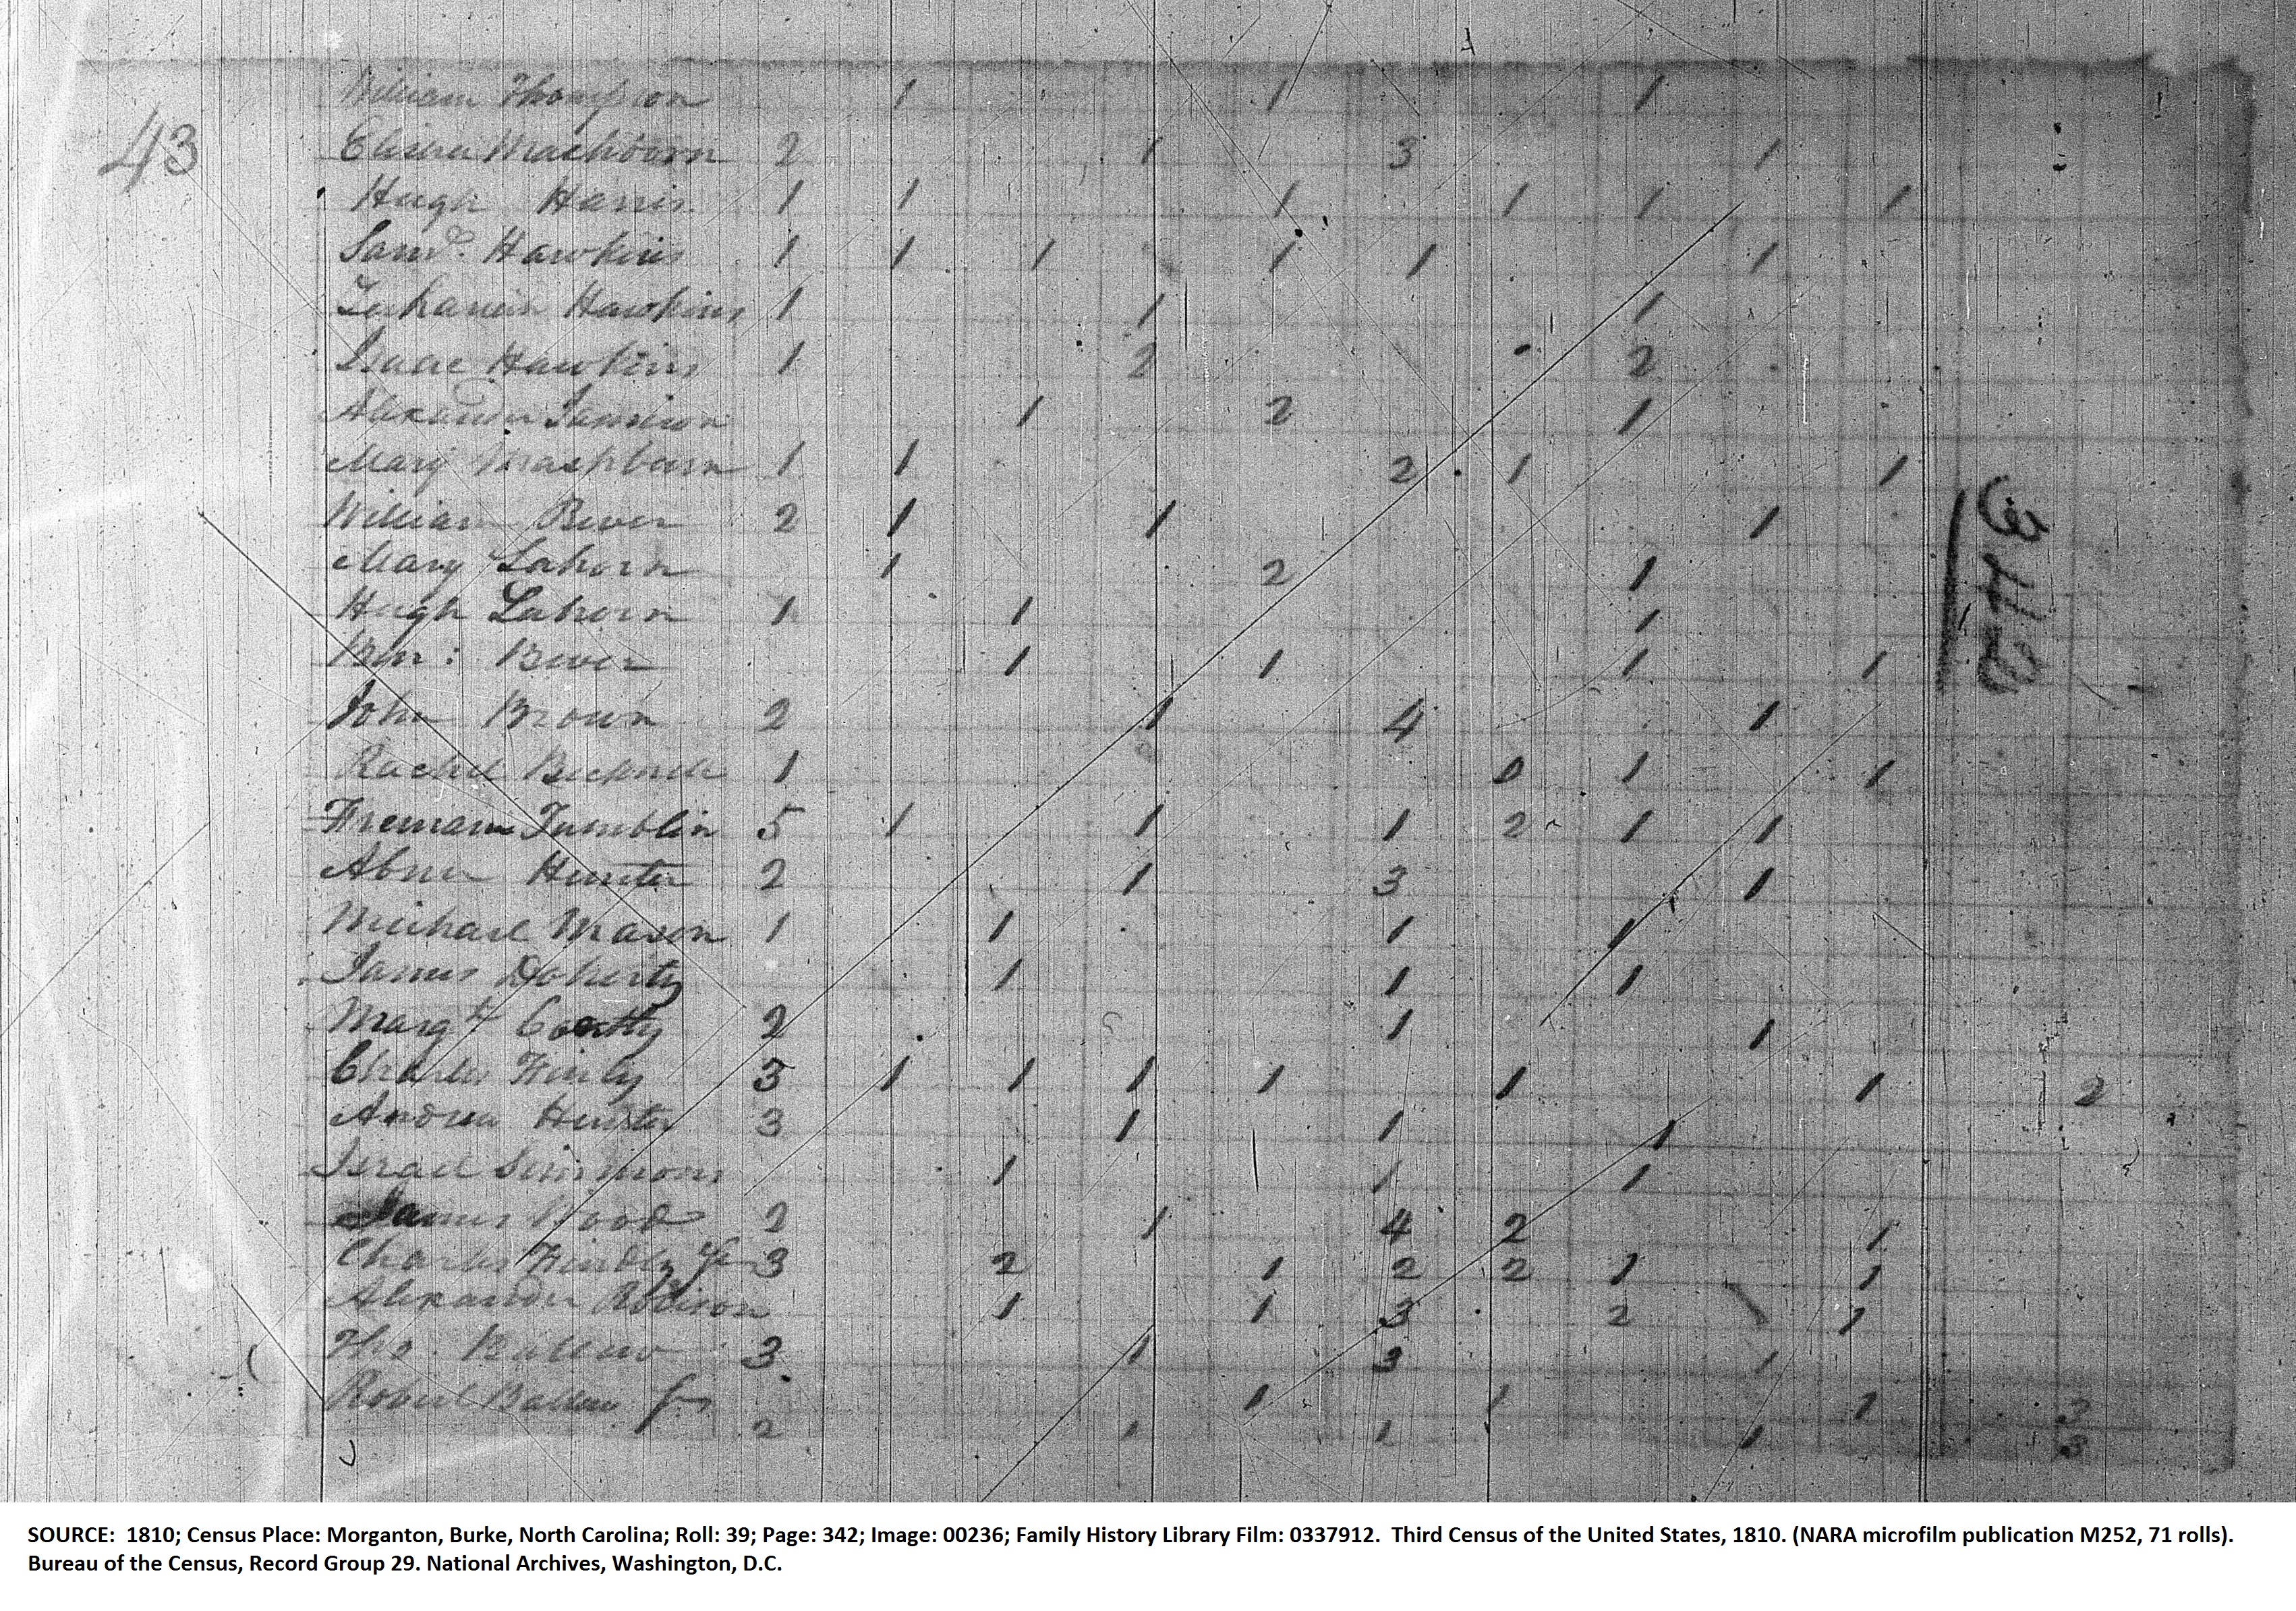 William Thompson 1 1 1
43
Elisha Mashborn 2 1 3 1
Hugh Harris 1 1 1 1 1 1
Saml. Hawkins 1 1 1 1 1 1
Zachariah Hawkins 1 1 1
Isaac Hawkins 1 2 2
Alexander Jamison 1 2 1
Mary Mashburn 1 1 2 1 1
William Bever 2 1 1 1
Mary Lahorn 1 2 1
Hugh Lahorn 1 1 1
Ben: Bever 1 1 1 1
John Brown 2 1 4 1
Rachel 1 0 1 1
Freeman Tumblin 5 1 1 1 2 1 1
Abner Hunter 2 1 3 1
Michael Mason 1 1 1 1
James Doherty 1 1 1
Margt 2 1 1
Charles Finly 3 1 1 1 1 1 1 2
Andrew Hunter 3 1 1 1
Israel Simmons 1 1 1
James Wood 2 1 4 2 1
Charles Findly 3 2 1 2 2 1 1
Alexander Addison 1 1 3 2 1
Tho. Ballew 3 1 3 1
Robert Ballew 1 1 1 3
2 1 1 1 3
342
SOURCE: 1810; Census Place: Morganton, Burke, North Carolina; Roll: 39; Page: 342; Image: 00236; Family History Library Film: 0337912. Third Census of the United States, 1810. (NARA microfilm publication M252, 71 rolls).
Bureau of the Census, Record Group 29. National Archives, Washington, D.C.